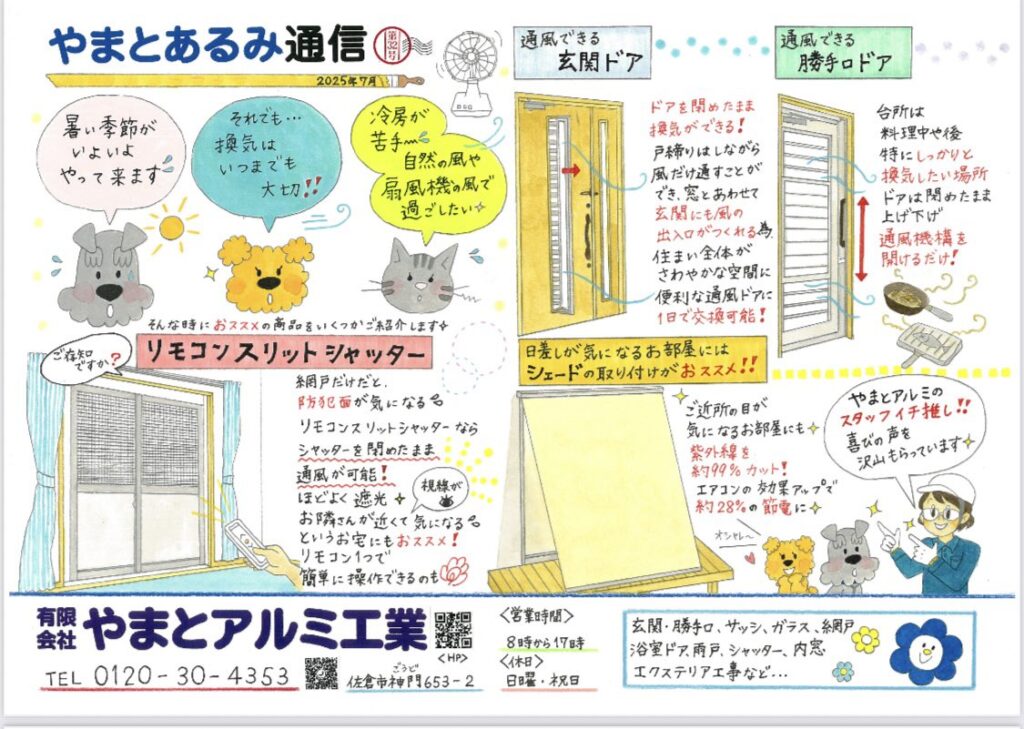 やまとあるみ通信
第32号
2025年7月
暑い季節が
いよいよ
やって来ます
それでも…
換気は
いつまでも
大切!!
冷房が
苦手〜
自然の風や
扇風機の風で
過ごしたい
そんな時におススメの商品をいくつかご紹介します
ご存知
ですか?
リモコンスリットシャッター
網戸だけだと、
防犯面が気になる
リモコンスリットシャッターなら
シャッターを閉めたまま
通風が可能!
ほどよく遮光
視線が
お隣さんが近くて気になる
というお宅にもおススメ!
リモコン1つで
簡単に操作できるのも
通風できる
玄関ドア
ドアを閉めたまま
換気ができる!
戸締りはしながら
風だけ通すことが
でき、窓とあわせて
玄関にも風の
出入口がつくれる為、
住まい全体が
さわやかな空間に
便利な通風ドアに
1日で交換可能!
通風できる
勝手口ドア
台所は
料理中や後
特にしっかりと
換気したい場所
ドアは閉めたまま
上げ下げ
通風機構を
開けるだけ!
日差しが気になるお部屋には
シェードの取り付けがおススメ!!
ご近所の目が
気になるお部屋にも
紫外線を
約99%カット!
エアコンの効果アップで
約28%の節電に
オシャレ〜
やまとアルミの
スタッフイチ推し!!
喜びの声を
沢山もらっています
有限
会社
やまとアルミ工業
<HP>
TEL 0120-30-4353
ごうど
佐倉市神門653-2
<営業時間>
8時から17時
<休日>
日曜・祝日
玄関・勝手口、サッシ、ガラス、網戸
浴室ドア、雨戸、シャッター、内窓
エクステリア工事など…